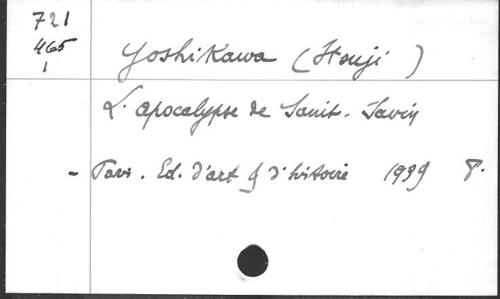 721
465
1
Yoshikawa (Itsuji)
L'apocalypse de Saint-Savin
- Paris. Ed. d'art & d'histoire 1939 8°.